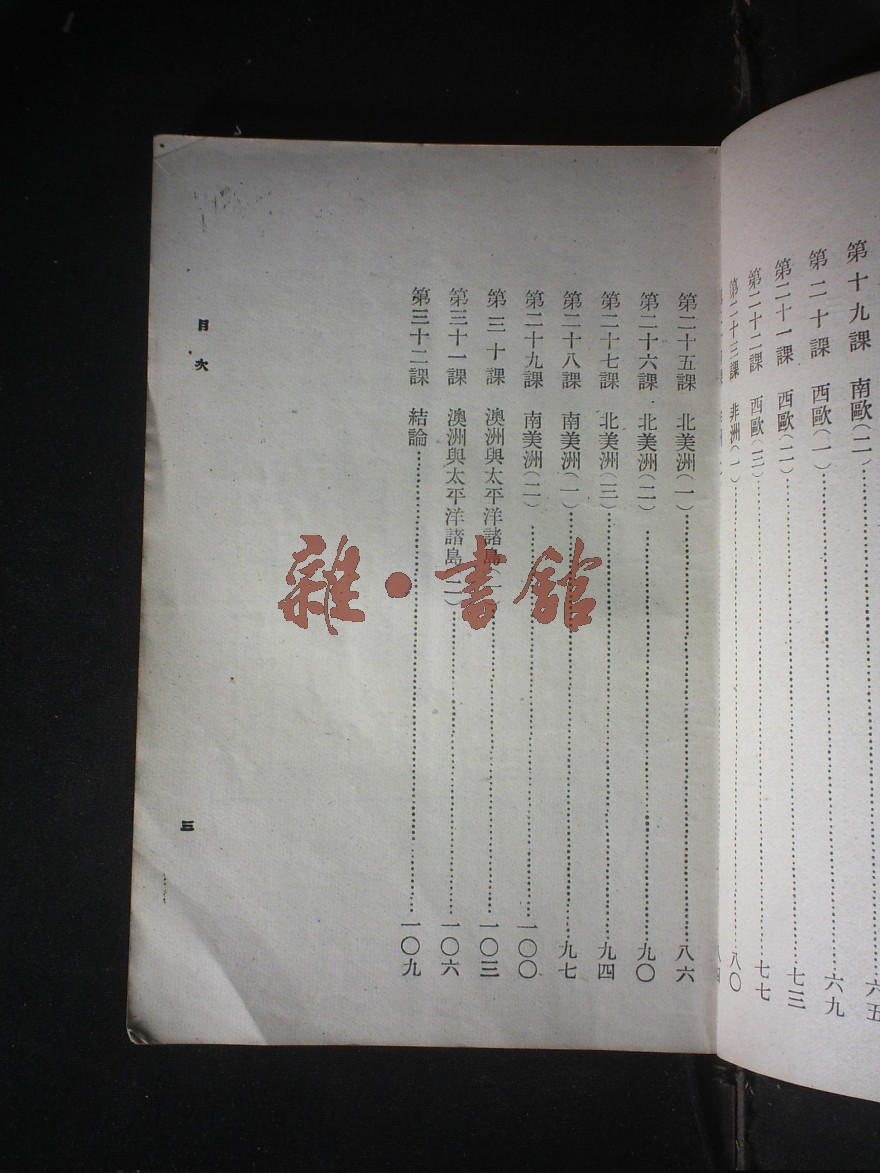 第十九課 南歐(二)⋯⋯六五
第二十課 西歐(一)⋯⋯六九
第二十一課 西歐(二)⋯⋯七三
第二十二課 西歐(三)⋯⋯七七
第二十三課 非洲(一)⋯⋯八〇
第二十五課 北美洲(一)⋯⋯八六
第二十六課 北美洲(二)⋯⋯九〇
第二十七課 北美洲(三)⋯⋯九四
第二十八課 南美洲(一)⋯⋯九七
第二十九課 南美洲(二)⋯⋯一〇〇
第三十課 澳洲與太平洋諸島(一)⋯⋯一〇三
第三十一課 澳洲與太平洋諸島(二)⋯⋯一〇六
第三十二課 結論⋯⋯一〇九
目次
三
雜·書館